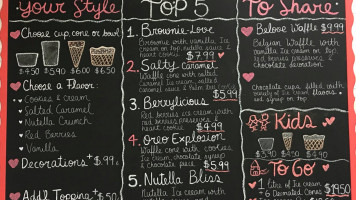 Your Style
Choose cup, cone or bowl
$4.50 $5.90 $6.00 $6.50
Choose a Flavor:
Cookies & Cream
Salted Caramel
Nutella Crunch
Red Berries
Vanilla
Decorations + $.99¢
Addl Topping +
TOP 5
1. Brownie-Love
Brownie with vanilla Ice
cream on top, nutella sauce &
heart cookie $7.99
2. Salty Caramel
Waffle cone with salted
Caramel Ice cream, salted
caramel sauce &
$5.99
3. Berrylicious
Red berries ice cream with
red berries preserves &
heart cookie $4.99
4. Oreo Explosion
Waffle cone with cookies
Ice cream, chocolate syrup
& chocolate piece $5.99
5. Nutella Bliss
Nutella Ice cream with
To Share
Belove Waffle $9.99
Belgian Waffle, with
Vanilla Ice cream on top
red berries preserves &
chocolate decoration
Chocolate cups filled with
& syrup on top
Kids
$3.90 $4.50
To Go
1 Litre of Ice cream
6 Decorated Cones $19.50